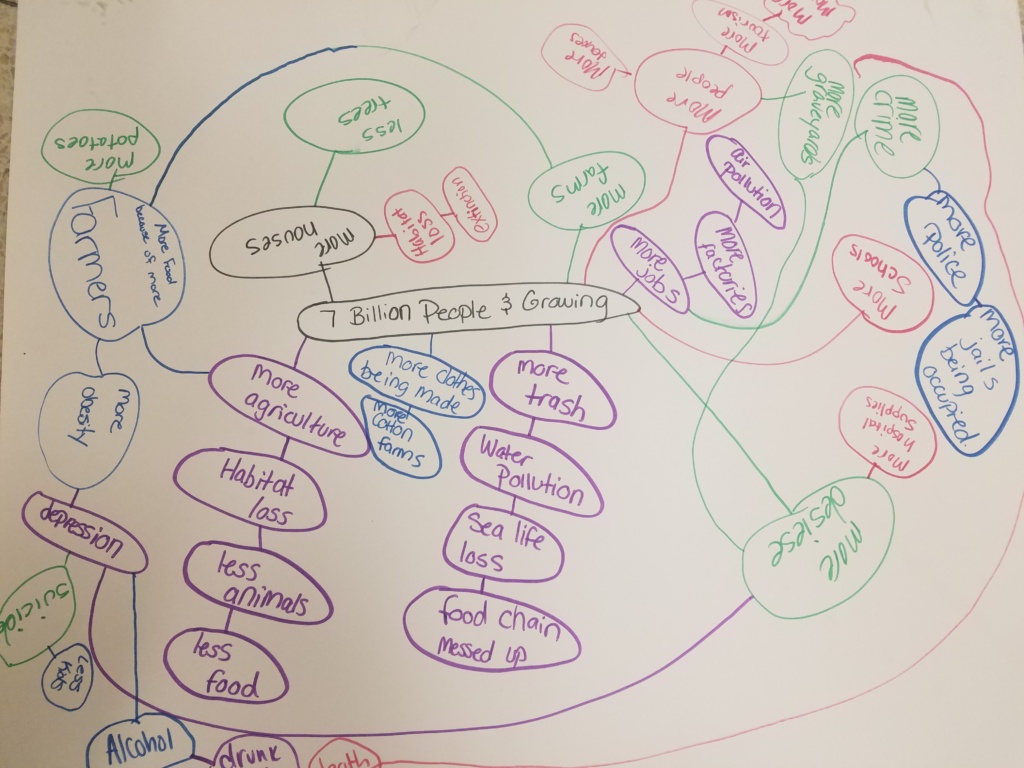 7 Billion People & Growing
more
houses
less
trees
Habitat
loss
extinction
more
farms
More
people
More
taxes
More
tourism
More
more
graveyards
more
crime
more
police
more
jails
being
occupied
More
Schools
more
jobs
more
factories
air
pollution
more
hospital
supplies
more
desiese
more
trash
Water
Pollution
sea life
loss
food chain
messed up
more clothes
being made
more
cotton
farms
more
agriculture
Habitat
loss
less
animals
less
food
Farmers
More Food
because of more
more
potatoes
more
obesity
depression
suicide
Less
Kids
Alcohol
drunk